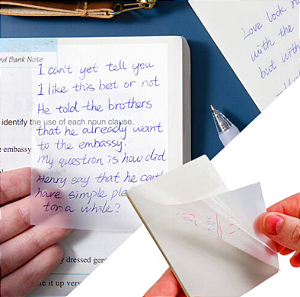 nd Bank Note
I can't yet tell you
I like this bet or not
He told the brothers
identify the use of each noun clause.
that he already want
e embassy
to the embassy.
My question is how did
Henry say that he can't
have simple ple
for a whole?
y dressed ger
e it up very
Love look n
with the
but with